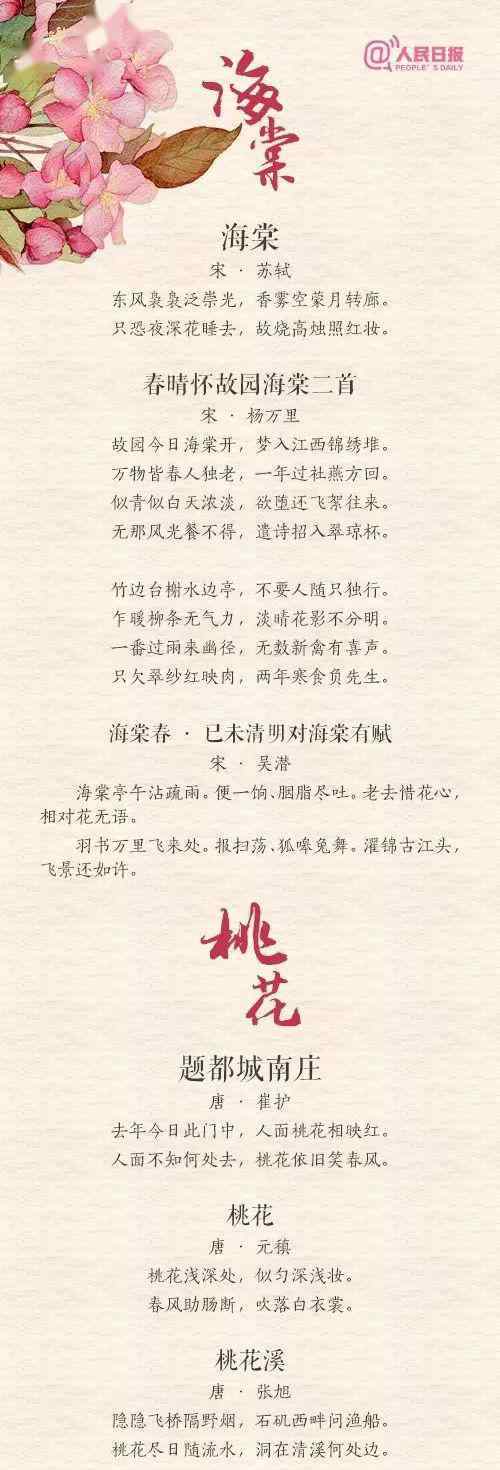 @人民日报
PEOPLE'S DAILY
海棠
海棠
宋 · 苏轼
东风袅袅泛崇光，香雾空蒙月转廊。
只恐夜深花睡去，故烧高烛照红妆。
春晴怀故园海棠二首
宋 · 杨万里
故园今日海棠开，梦入江西锦绣堆。
万物皆春人独老，一年过社燕方回。
似青似白天浓淡，欲堕还飞絮往来。
无那风光餐不得，遣诗招入翠琼杯。
竹边台榭水边亭，不要人随只独行。
乍暖柳条无气力，淡晴花影不分明。
一番过雨来幽径，无数新禽有喜声。
只欠翠纱红映肉，两年寒食负先生。
海棠春 · 已未清明对海棠有赋
宋 · 吴潜
海棠亭午沾疏雨。便一饷、胭脂尽吐。老去惜花心，
相对花无语。
羽书万里飞来处。报扫荡、狐嗥兔舞。濯锦古江头，
飞景还如许。
桃花
题都城南庄
唐 · 崔护
去年今日此门中，人面桃花相映红。
人面不知何处去，桃花依旧笑春风。
桃花
唐 · 元稹
桃花浅深处，似匀深浅妆。
春风助肠断，吹落白衣裳。
桃花溪
唐 · 张旭
隐隐飞桥隔野烟，石矶西畔问渔船。
桃花尽日随流水，洞在清溪何处边。